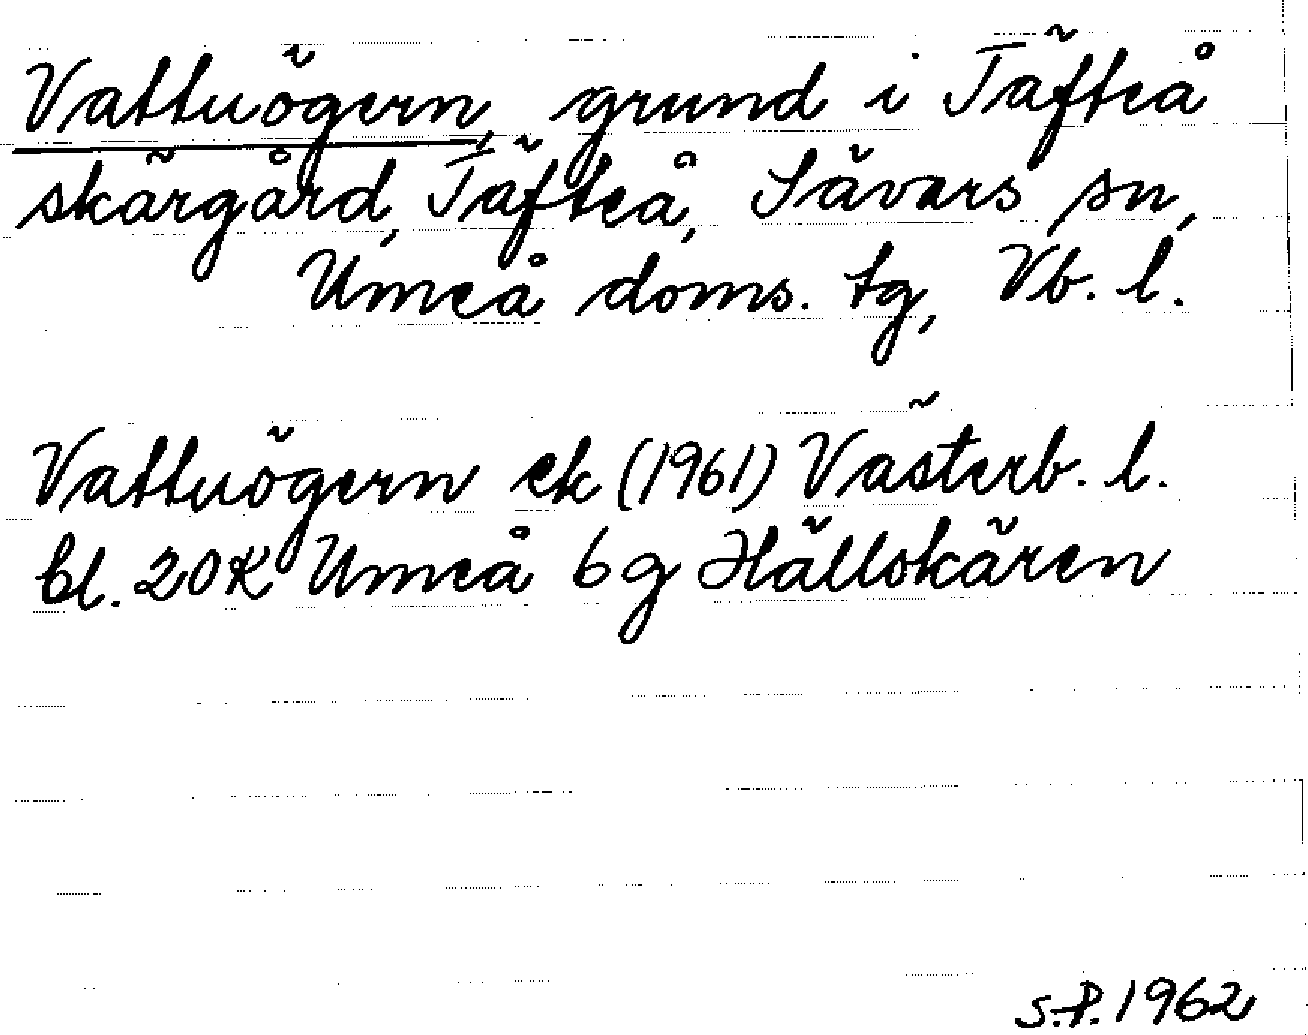 Vattuögern, grund i Täfteå
skärgård, Täfteå, Sävars sn,
Umeå doms. tg, Vb. l.
Vattuögern ek (1961) Västerb. l.
bl. 20K Umeå 6g Hällskären
S.P. 1962